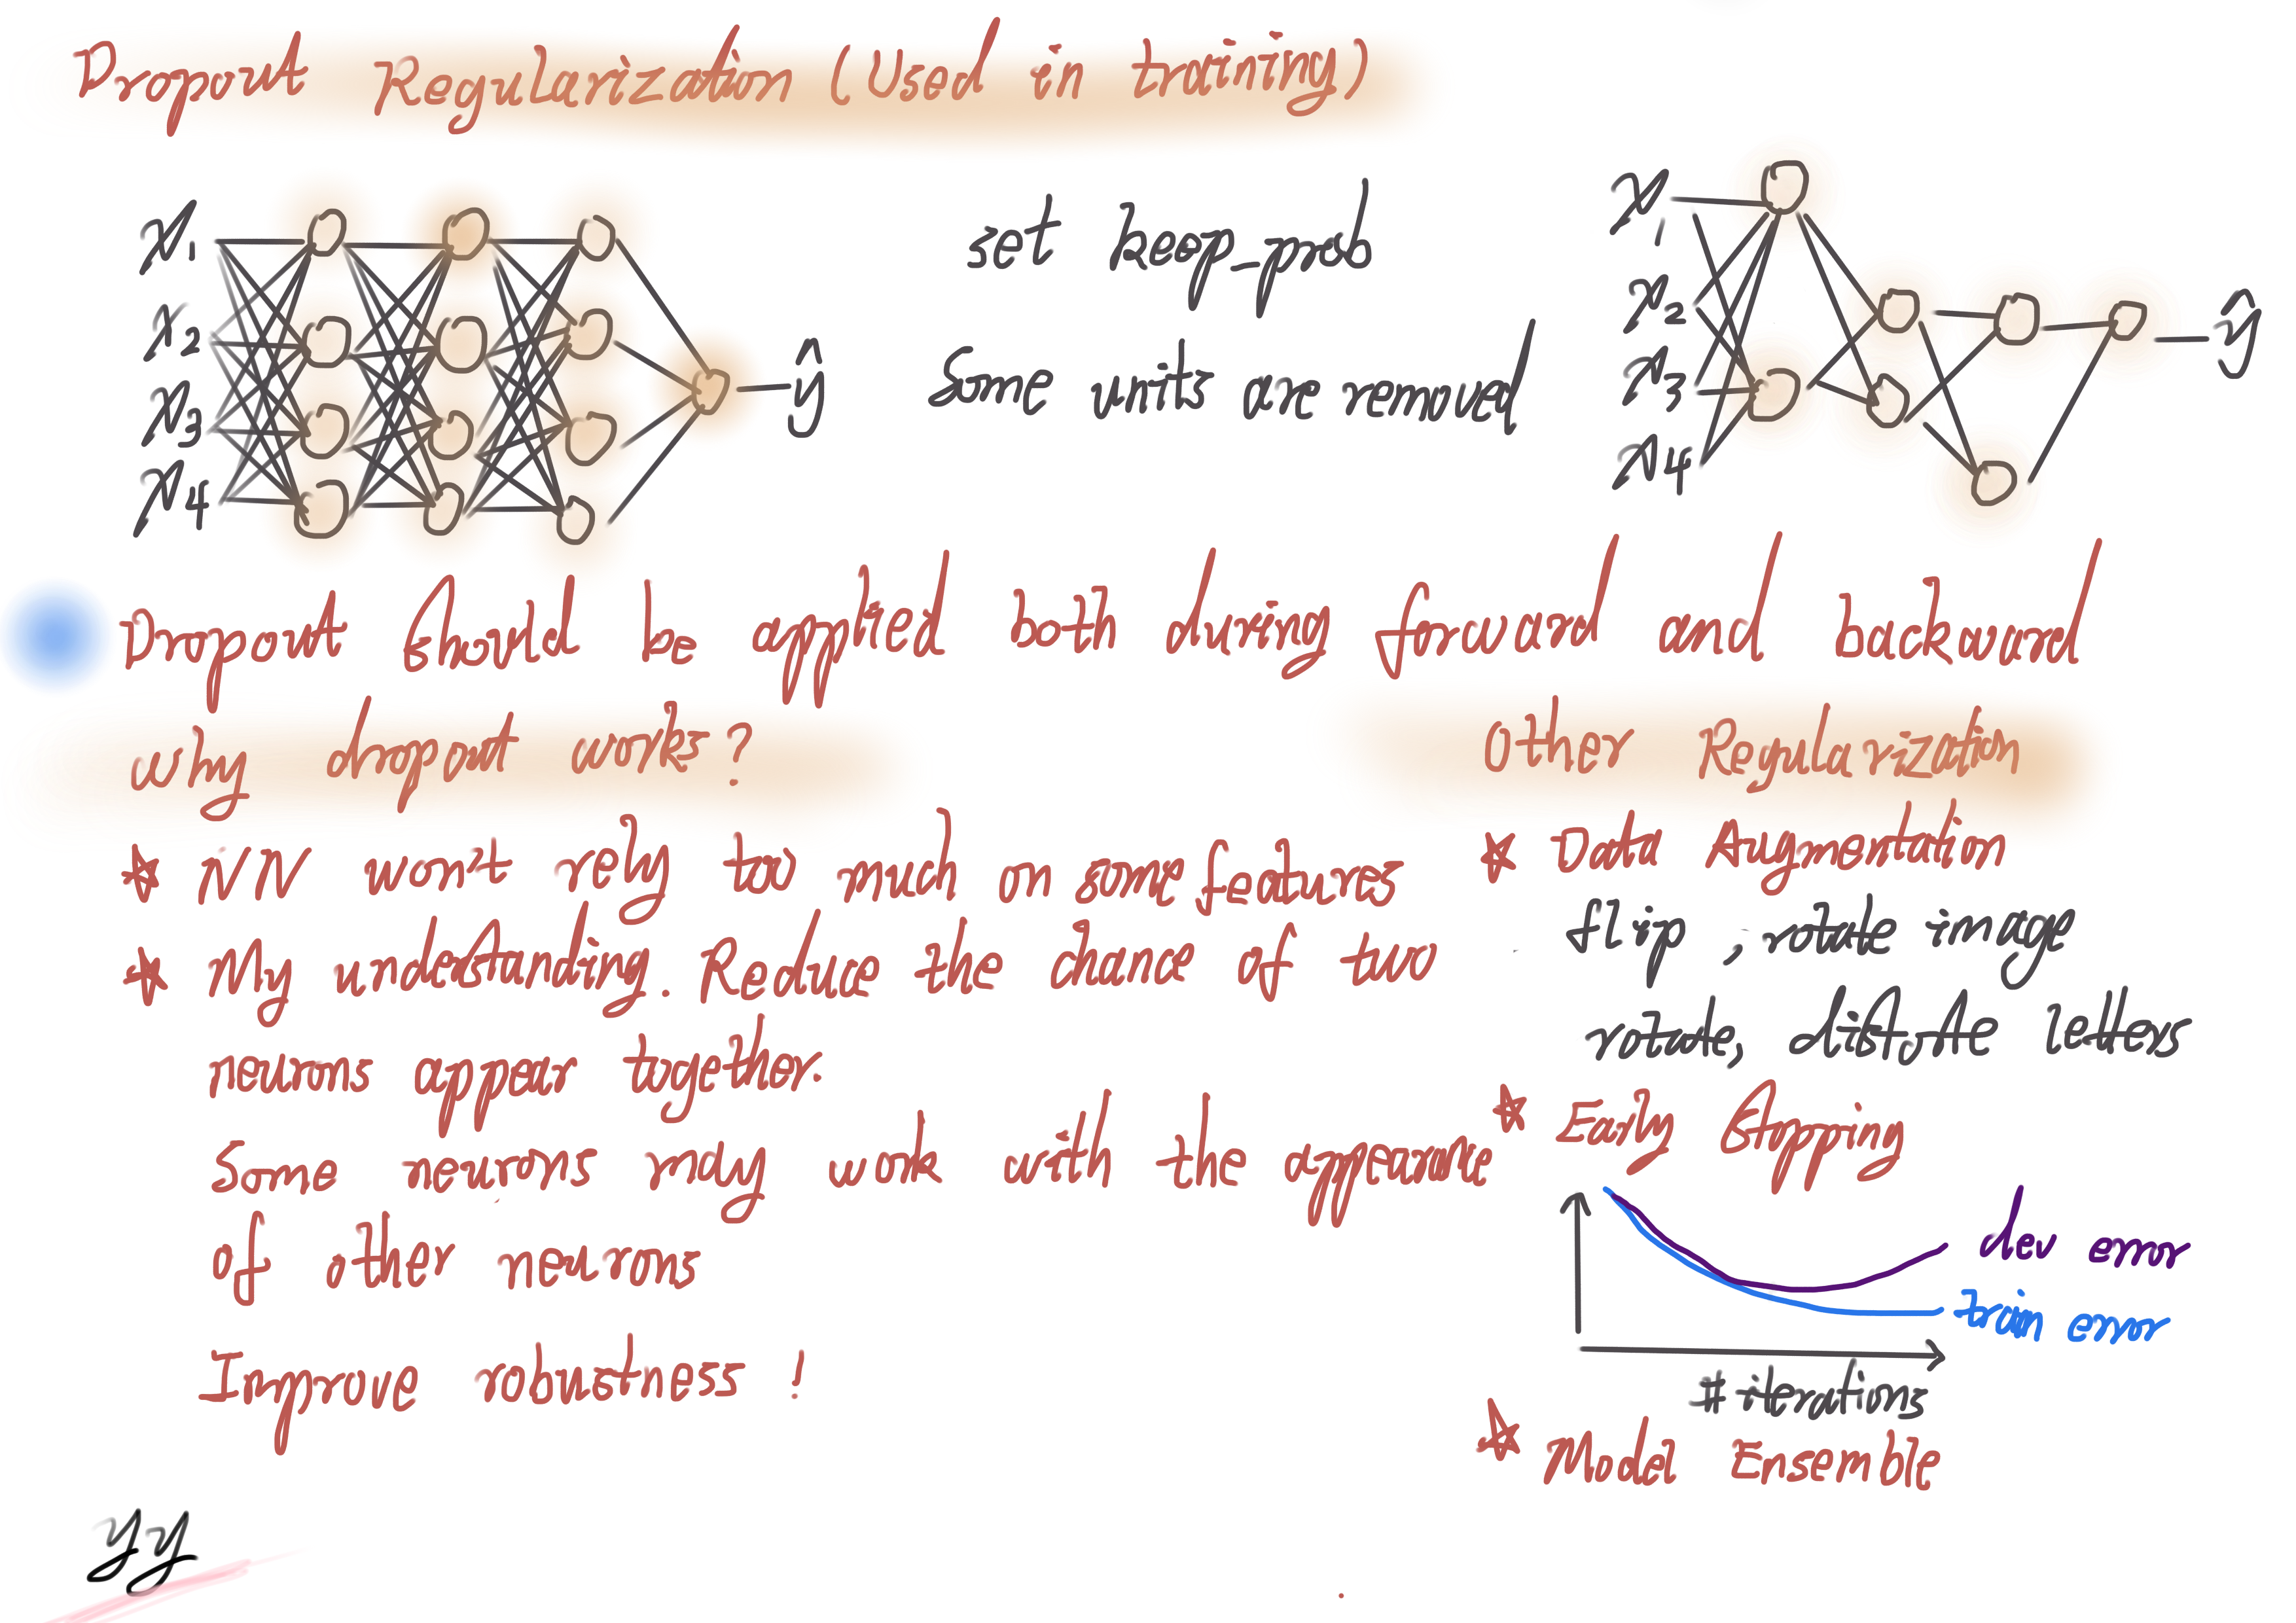 Dropout Regularization (Used in training)
x1
x2
x3
x4
ŷ
set keep_prob
Some units are removed
x1
x2
x3
x4
ŷ
Dropout should be applied both during forward and backward
why dropout works?
NN won't rely too much on some features
My understanding. Reduce the chance of two
neurons appear together.
Some neurons may work with the appearance
of other neurons
Improve robustness !
Other Regularization
Data Augmentation
flip , rotate image
rotate, distote letters
Early Stopping
dev error
train error
# iterations
Model Ensemble
yy